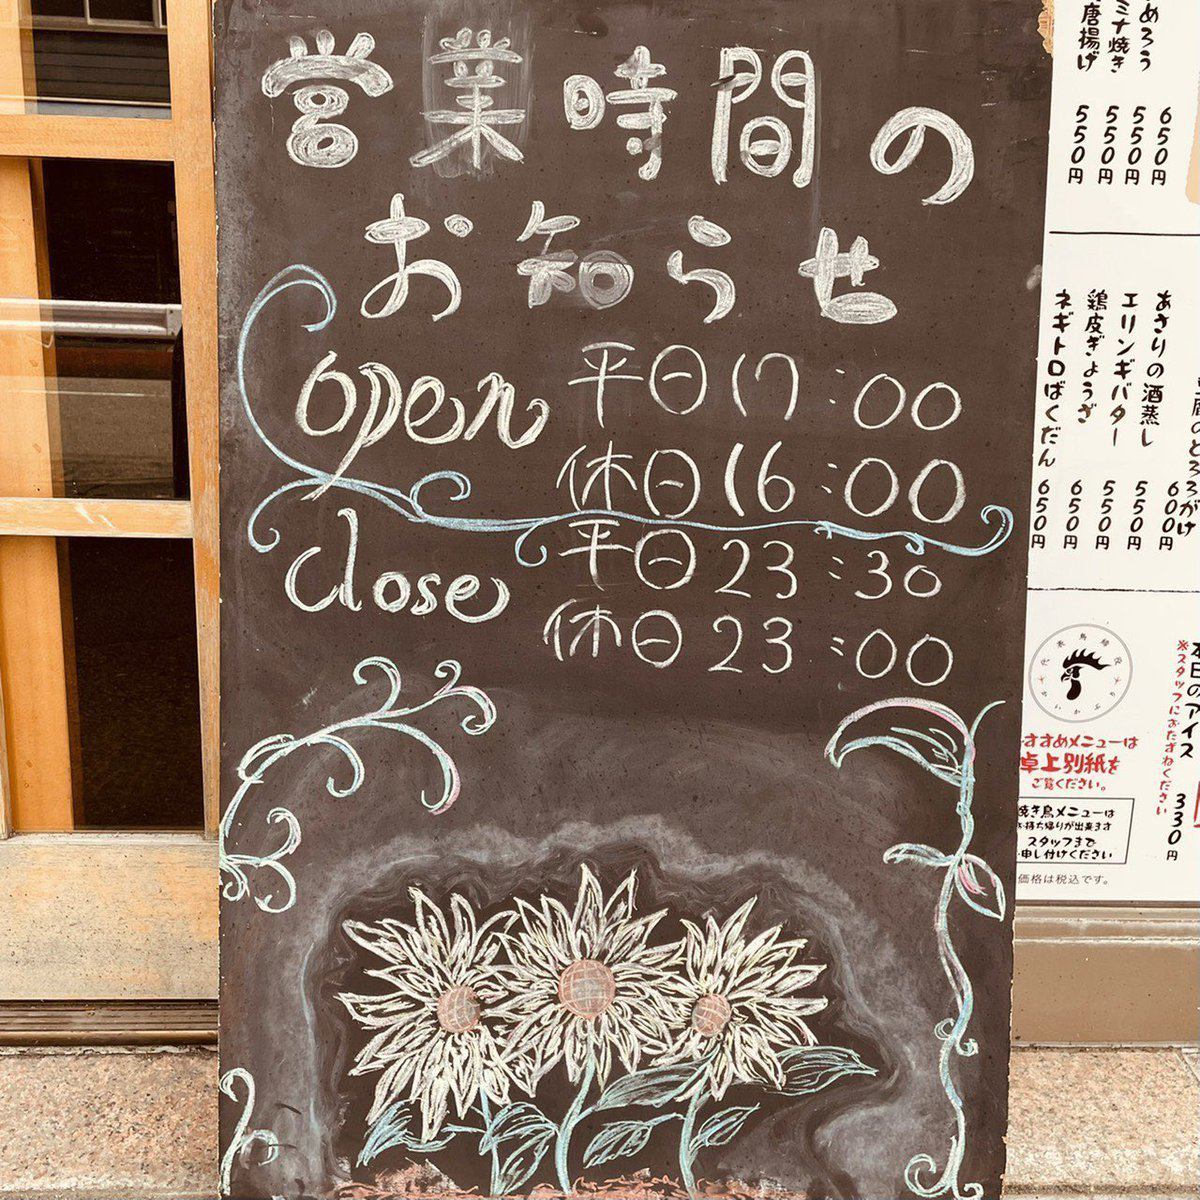 営業時間の
お知らせ
open 平日 17:00
休日 16:00
close 平日 23:30
休日 23:00
650円
550円
550円
550円
あさりの酒蒸し
エリンギバター
鶏皮ぎょうざ
ネギトロばくだん
600円
550円
550円
650円
650円
本日のアイス 330円
※スタッフにおたずねください
すすめメニューは
卓上別紙を
ご覧ください。
焼き鳥メニューは
お持ち帰りが出来ます
スタッフまで
申し付けください
価格は税込です。